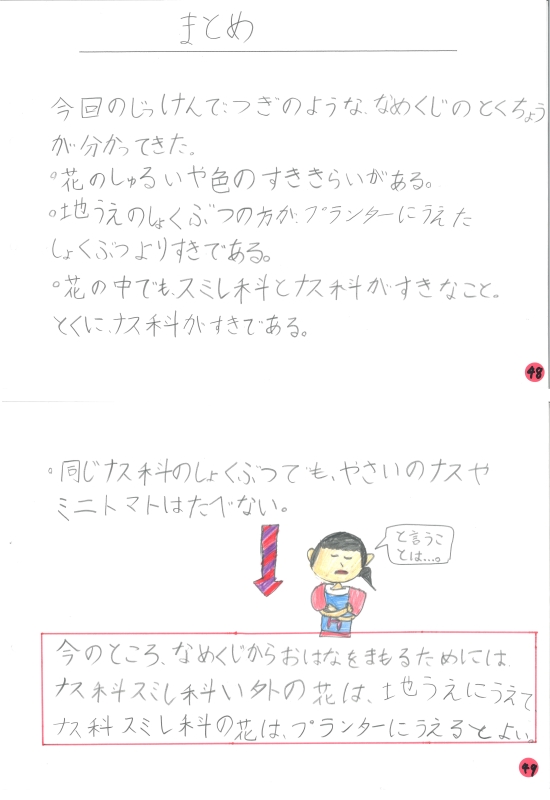 まとめ
今回のじっけんで、つぎのような、なめくじのとくちょう
が分かってきた。
○花のしゅるいや色のすききらいがある。
○地うえのしょくぶつの方が、プランターにうえた
しょくぶつよりすきである。
○花の中でも、スミレ科とナス科がすきなこと。
とくに、ナス科がすきである。
48
○同じナス科のしょくぶつでも、やさいのナスや
ミニトマトはたべない。
と言うこ
とは…。
今のところ、なめくじからおはなをまもるためには、
ナス科スミレ科い外の花は、地うえにうえて
ナス科スミレ科の花は、プランターにうえるとよい。
49